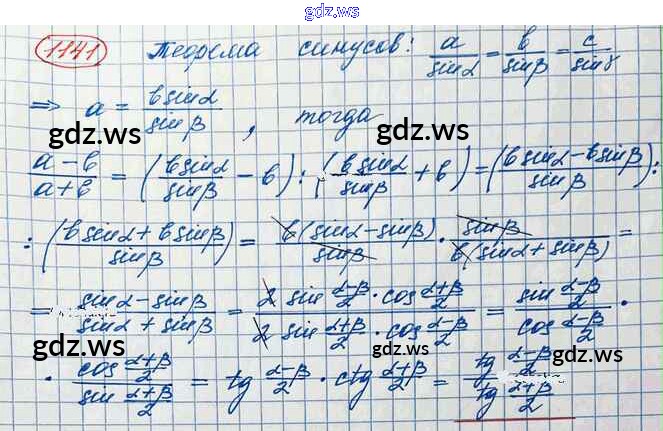 gdz.ws
gdz.ws
1141 Теорема синусов: a/sinα = b/sinβ = c/sinγ
=> a = bsinα/sinβ, тогда
gdz.ws gdz.ws
(a-b)/(a+b) = (bsinα/sinβ - b) : (bsinα/sinβ + b) = ((bsinα - bsinβ)/sinβ) :
: ((bsinα + bsinβ)/sinβ) = b(sinα - sinβ)/sinβ · sinβ/b(sinα + sinβ) =
= (sinα - sinβ)/(sinα + sinβ) = (2 sin (α-β)/2 · cos (α+β)/2)/(2 sin (α+β)/2 · cos (α-β)/2) = (sin (α-β)/2)/(cos (α-β)/2) ·
gdz.ws gdz.ws
· (cos (α+β)/2)/(sin (α+β)/2) = tg (α-β)/2 · ctg (α+β)/2 = (tg (α-β)/2)/(tg (α+β)/2)
gdz.ws